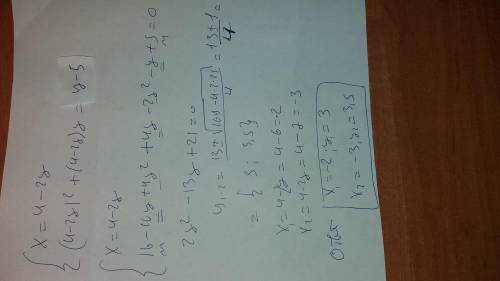 { x = 4 - 2y
{ (4-2y)² + (4-2y)y = y - 5
{ x = 4 - 2y
{ 16 - 16y + 4y² + 4y - 2y² - y + 5 = 0
2y² - 13y + 21 = 0
y₁,₂ = (13 ± √(169 - 4·2·21))/4 = (13 ± 1)/4 =
= { 3 ; 3,5 }
x₁ = 4 - 2y = 4 - 6 = -2
x₂ = 4 - 2y = 4 - 7 = -3
Ответ x₁ = -2 ; y₁ = 3
x₂ = -3 ; y₂ = 3,5